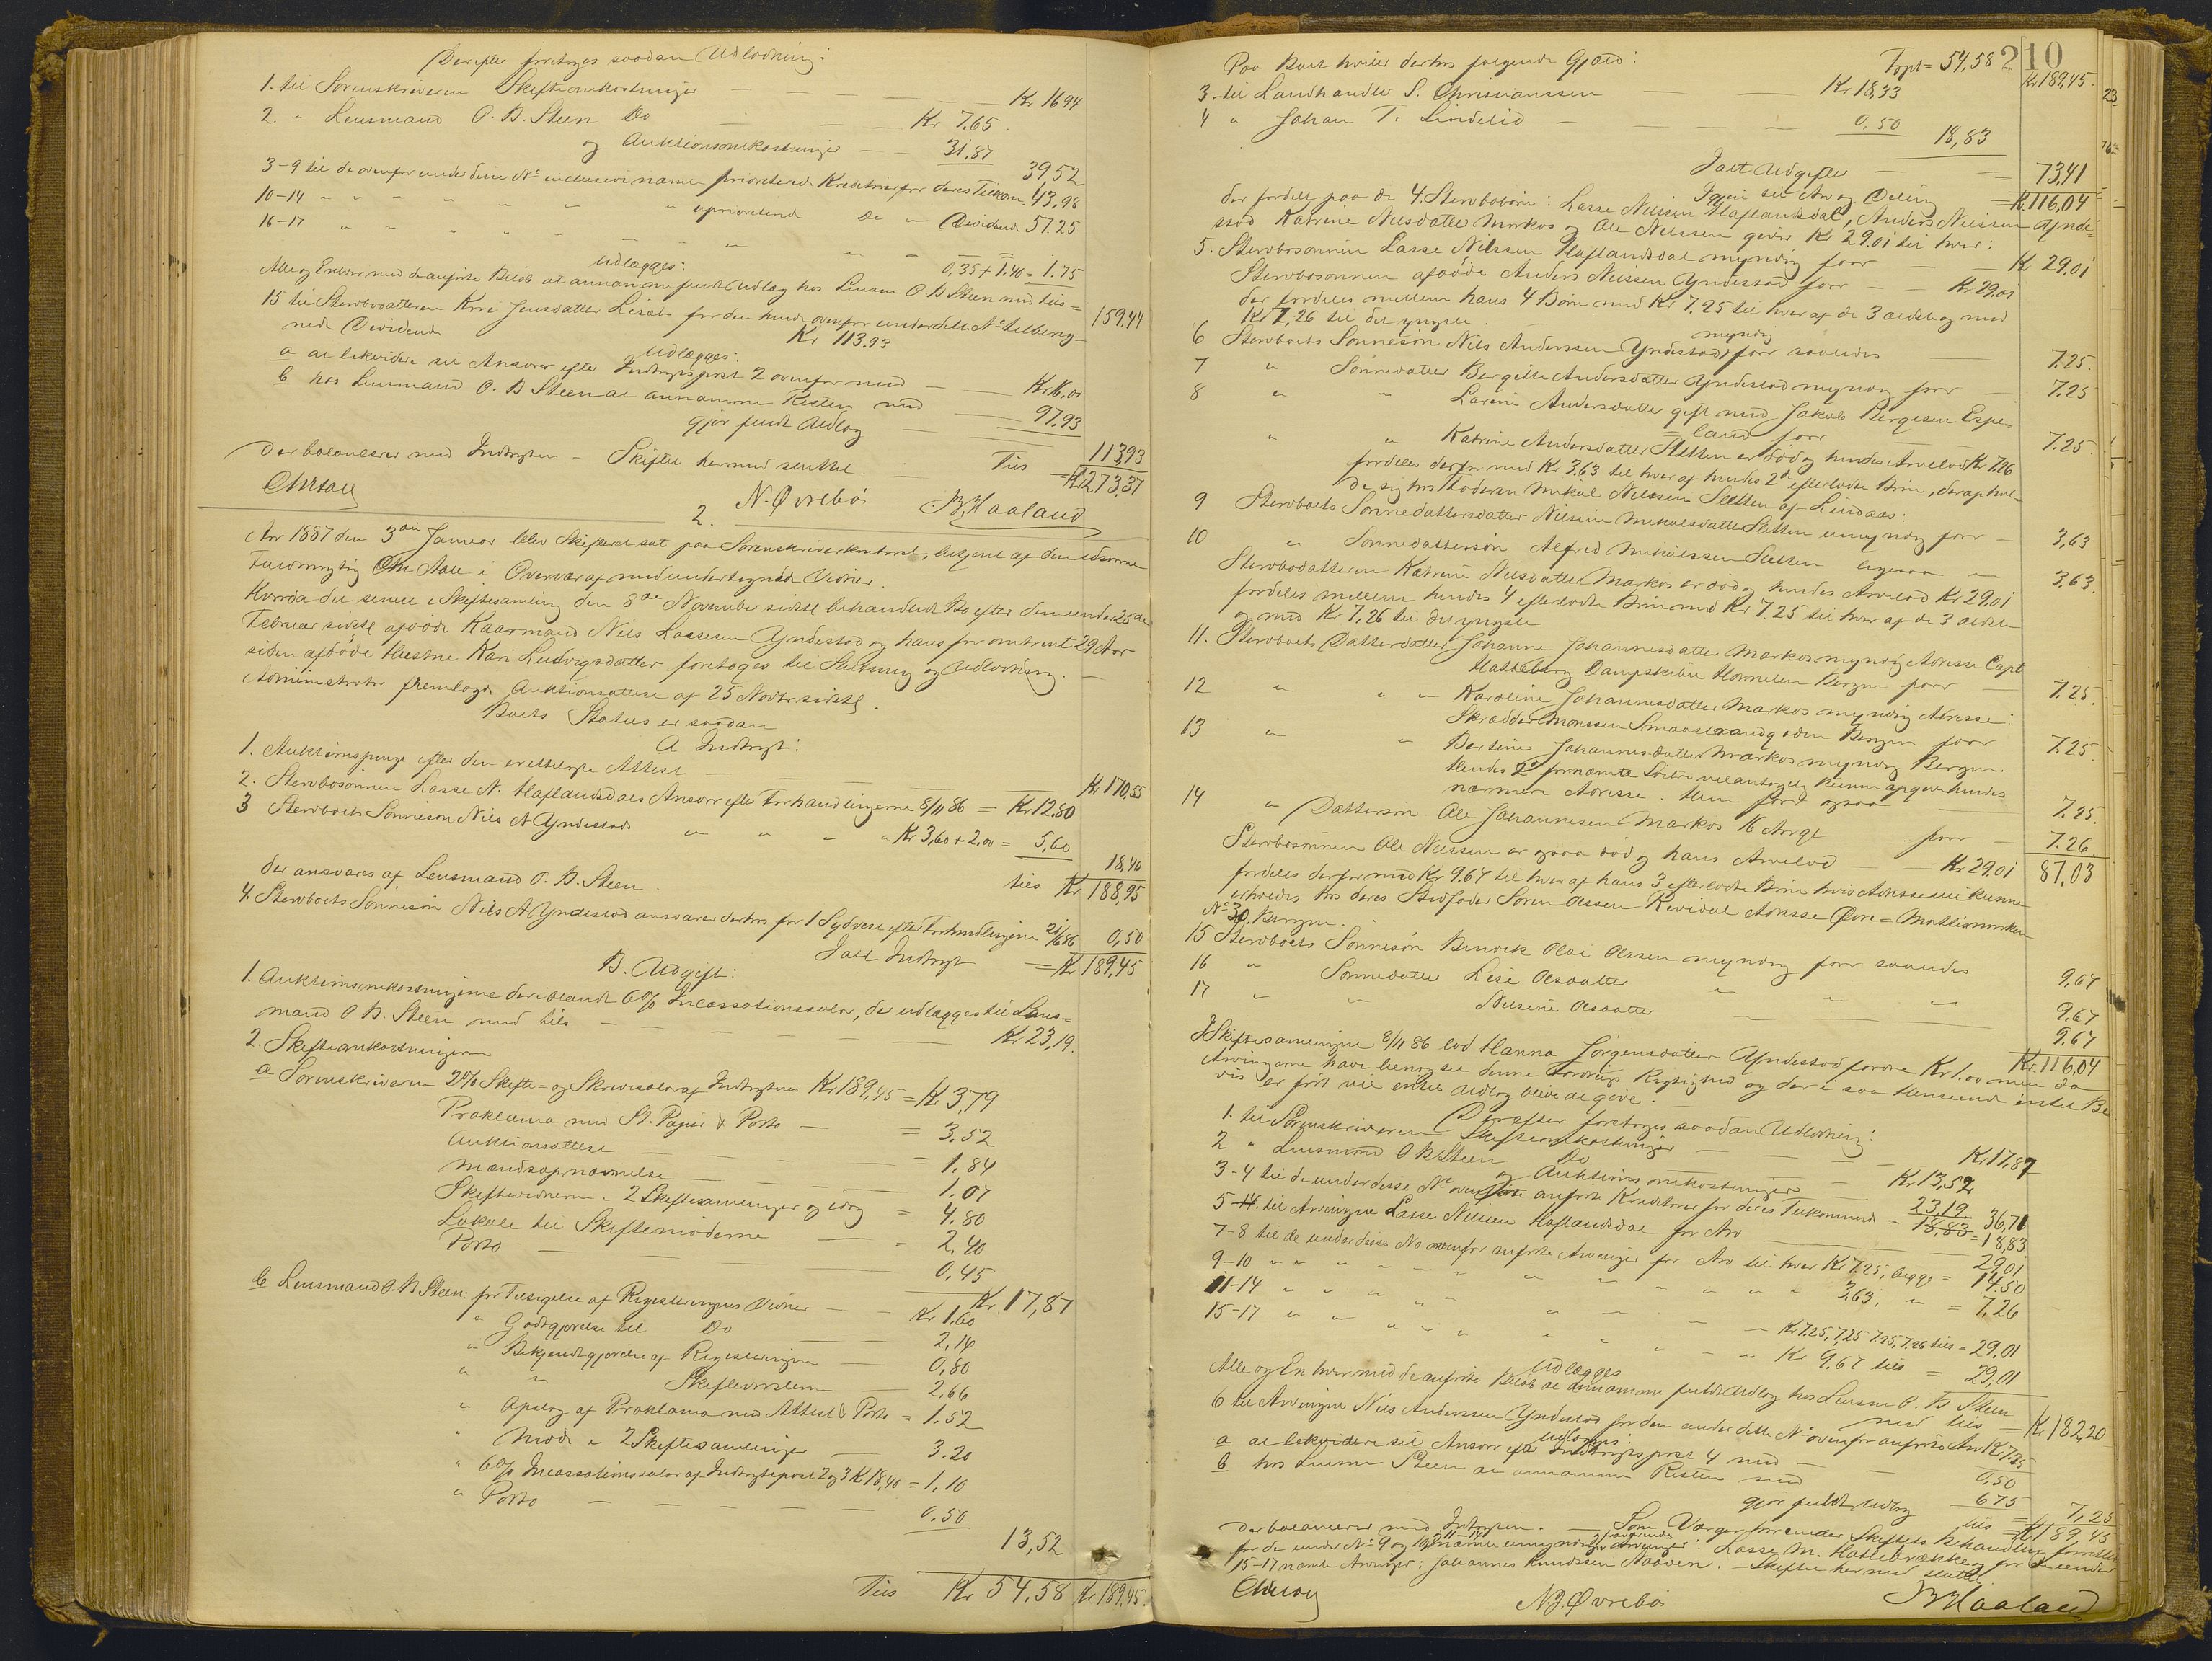 Derefter foretoges saadan Udlodning:
1. til Sorenskriveren Skifteomkostninger — Kr 16 94
2. " Lensmand O. B. Steen Do — Kr 7.65
og Auktionsomkostninger — 31.87
39,52
3-9 til de ovenfor under disse No nævnte prioriterede Kreditorer for deres Tilkom. 43,98
10-14 " " " " " uprioriterede Do " Dividende 57.25
16-17 " " " " " 0,35 + 1.40 = 1.75
udlægges:
Alle og Enhver med de anførte Beløb at annamme fuldt Udlæg hos Lensm O B Steen med tils = 159,44
15 til Stervbodatteren Kari Jensdatter Lisæt for den hende ovenfor under dette No tilberegnede
Dividende Kr 113.93
udlægges:
a at likvidere sit Ansvar efter Indtægtspost 2 ovenfor med — Kr 16,01
b hos Lensmand O. B Steen at annamme Resten med — 97.93
gjør fuldt Udlæg — 113,93
Der balancerer med Indtægten – Skiftet hermed sluttet. Tils = Kr 273,37
N. Øvrebø B. Haaland
2.
Aar 1887 den 3die Januar blev Skifteret sat paa Sorenskriverkontoret, betjent af den edsvorne
Fuldmægtig Chr Aall i Overvær af medundertegnede Vidner.
Hvorda det senest i Skiftesamling den 8de November sidstl behandlede Bo efter den under 25de
Februar sidstl afdøde Kaarmand Nils Lassesen Yndestad og hans for omtrent 29 Aar
siden afdøde Hustru Kari Ludvigsdatter foretoges til Slutning og Udlodning. —
Administrator fremlagde Auktionsattest af 25 Novbr sidstl.
Boets Status er saadan
A Indtægt:
1. Auktionspenge efter den vedtagte Attest — Kr 170,55
2. Stervbosønnen Lasse N. Haflandsdals Ansvar efter Forhandlingerne 8/11 86 = Kr 12.80
3 Stervboets Sønnesøn Nils A Yndestads " " " " Kr 3,60 + 2,00 = 5,60
18,40
der ansvares af Lensmand O. B. Steen. tils Kr 188,95
4. Stervboets Sønnesøn Nils A Yndestad ansvarer derhos for 1 Sydvest efter Forhandlingerne 21/6 86 0,50
Ialt Indtægt = Kr 189,45
B. Udgift:
1. Auktionsomkostningerne deriblandt 6% Incassationssalær, der udlægges til Lens=
mand O B. Steen med tils — Kr 23,19.
2. Skifteomkostningerne
a Sorenskriveren 2% Skifte= og Skriversalær af Indtægten Kr 189,45 = Kr 3,79
Proklama med St. Papir & Porto — = 3,52
Auktionsattest — = 1,84
Mandsopnævnelse — 1,07
Skiftevidnerne i 2 Skiftesamlinger og idag = 4,80
Lokale til Skiftemøderne — = 2,40
Porto — 0,45
Kr. 17,87
b Lensmand O. B Steen: for Tilsigelse af Registrerings Vidner — Kr 1,60
" Godtgjørelse til Do — 2,14
" Bekjendtgjørelse af Registreringen — 0,80
" " Skifteværslerne — 2,66
" Opslag af Proklama med Attest & Porto = 1,52
" Møde i 2 Skiftesamlinger — 3.20
" 6% Incassationssalær af Indtægtspost 2 og 3 Kr 18,40 = 1,10
" Porto — 0.50
13,52
Tils Kr 54.58 Kr 189,45.
210
Fspt = 54,58 Kr 189,45.
Paa Boet hviler derhos følgende Gjæld:
3. til Landhandler S. Christianssen — Kr 18,33
4 " Johan T. Lindelid — 0,50
18,83
Ialt Udgifter — = 73,41
Igjen til Arv og Deling = Kr. 116,04
der fordelt paa de 4 Stervbobørn: Lasse Nilssen Haflandsdal, Anders Nilssen Ynde=
stad Katrine Nilsdatter Markos og Ole Nilssen gjør Kr 29.01 til hver:
5. Stervbosønnen Lasse Nilssen Haflandsdal myndig faar — Kr 29,01
Stervbosønnen afdøde Anders Nilssen Yndestad faar — Kr 29.01
der fordeles mellem hans 4 Børn med Kr 7.25 til hver af de 3 ældste og med
Kr 7,26 til det yngste.
6 Stervboets Sønnesøn Nils Anderssen Yndestad myndig faar saaledes — 7.25.
7 " Sønnedatter Bergitte Andersdatter Yndestad myndig faar — 7.25
8 " " Larine Andersdatter gift med Jakob Børgesen Espe=
=land faar — 7.25.
" " Katrine Andersdatter Sletten er død og hendes Arvelod Kr 7.26
fordeles derfor med Kr 3.63 til hver af hendes 2de efterladte Børn, der ophol=
de sig hos Faderen Mikal Nilssen Sletten af Lindaas:
9 Stervboets Sønnedattersdatter Nilsine Mikalsdatter Sletten umyndig faar — 3,63
10 " Sønnedattersøn Alfred Mikalssen Sletten ligesaa " 3,63.
Stervbodatteren Katrine Nilsdatter Markos er død og hendes Arvelod Kr 29.01
fordeles mellem hendes 4 efterladte Børn med Kr 7.25 til hver af de 3 ældste
og med Kr 7,26 til det yngste
11. Stervboets Datterdatter Johanne Johannesdatter Markos myndig Adresse Capt
Hatteberg Dampskibet Hornelen Bergen faar — 7.25.
12 " " " Karoline Johannesdatter Markos myndig Adresse:
Skrædder Monssen Bergen faar 7.25
13 " " Bertine Johannesdatter Markos myndig Bergen.
Hendes 2de fornævnte Søstre vil antagelig kunne opgive hendes
nærmere Adresse. Hun faar ogsaa — 7.25.
14 " Dattersøn Ole Johannesen Markos 16 Aar gl faar — 7.26
Stervbosønnen Ole Nilssen er ogsaa død og hans Arvelod — Kr 29.01 87,03
fordeles derfor med Kr 9.67 til hver af hans 3 efterladte Børn hvis Adresse vil kunne
erholdes hos deres Stedfader Søren Olssen Adresse Øvre=
No 30, Bergen.
15 Stervboets Sønnesøn Olai Olssen myndig faar saaledes 9,67
16 " Sønnedatter Lise Olsdatter " " " 9,67
17 " " Nilsine Olsdatter 9.67
Kr. 116,04
I Skiftesamlingen 8/11 86 lod Hanna Jørgensdatter Yndestad fordre Kr 1.00 men da
Arvingerne have benægtet denne Fordrings Rigtighed og der i saa Henseende intet Be=
vis er ført vil intet Udlæg blive at give.
Derefter foretoges saadan Udlodning:
1. til Sorenskriveren Skifteomkostninger — Kr 17,87
2 " Lensmand O B Steen Do — Kr 13,52
og Auktionsomkostninger — 23,19 36,71
3-4 til de under disse No ovenfor anførte Kreditorer for deres Tilkommende = 18,83 = 18,83
5 til Arvingen Lasse Nilssen Haflandsdal for Arv — 29.01
7-8 til de under disse No ovenfor anførte Arvinger for Arv til hver Kr 7.25, begge = 14.50
9-10 " " " " " " 3,63, " = 7,26
11-14 " " " " " " Kr 7.25, 7,25 7.25, 7.26 tils = 29.01
15-17 " " " " " " Kr 9.67 tils = 29,01
udlægges
Alle og Enhver med de anførte Beløb at annamme fuldt Udlæg hos Lensm O. B Steen
med tils = Kr 182,20
6 til Arvingen Nils Anderssen Yndestad for den under dette No ovenfor anførte Arv Kr 7.25
udlægges:
a at likvidere sit Ansvar efter Indtægtspost 4 med — 0,50
b hos Lensm Steen at annamme Resten med 6 75
gjør fuldt Udlæg 7,25
tils = Kr 189,45
Der balancerer med Indtægten. — Som Værger under Skiftets Behandling
for de under No 9 og 10, 11-14 nævnte umyndige Arvinger: Lasse M. Hattebrække og for de under
15-17 nævnte Arvinger: Johannes Knudssen Naaven. — Skiftet hermed sluttet.
N. J. Øvrebø B Haaland